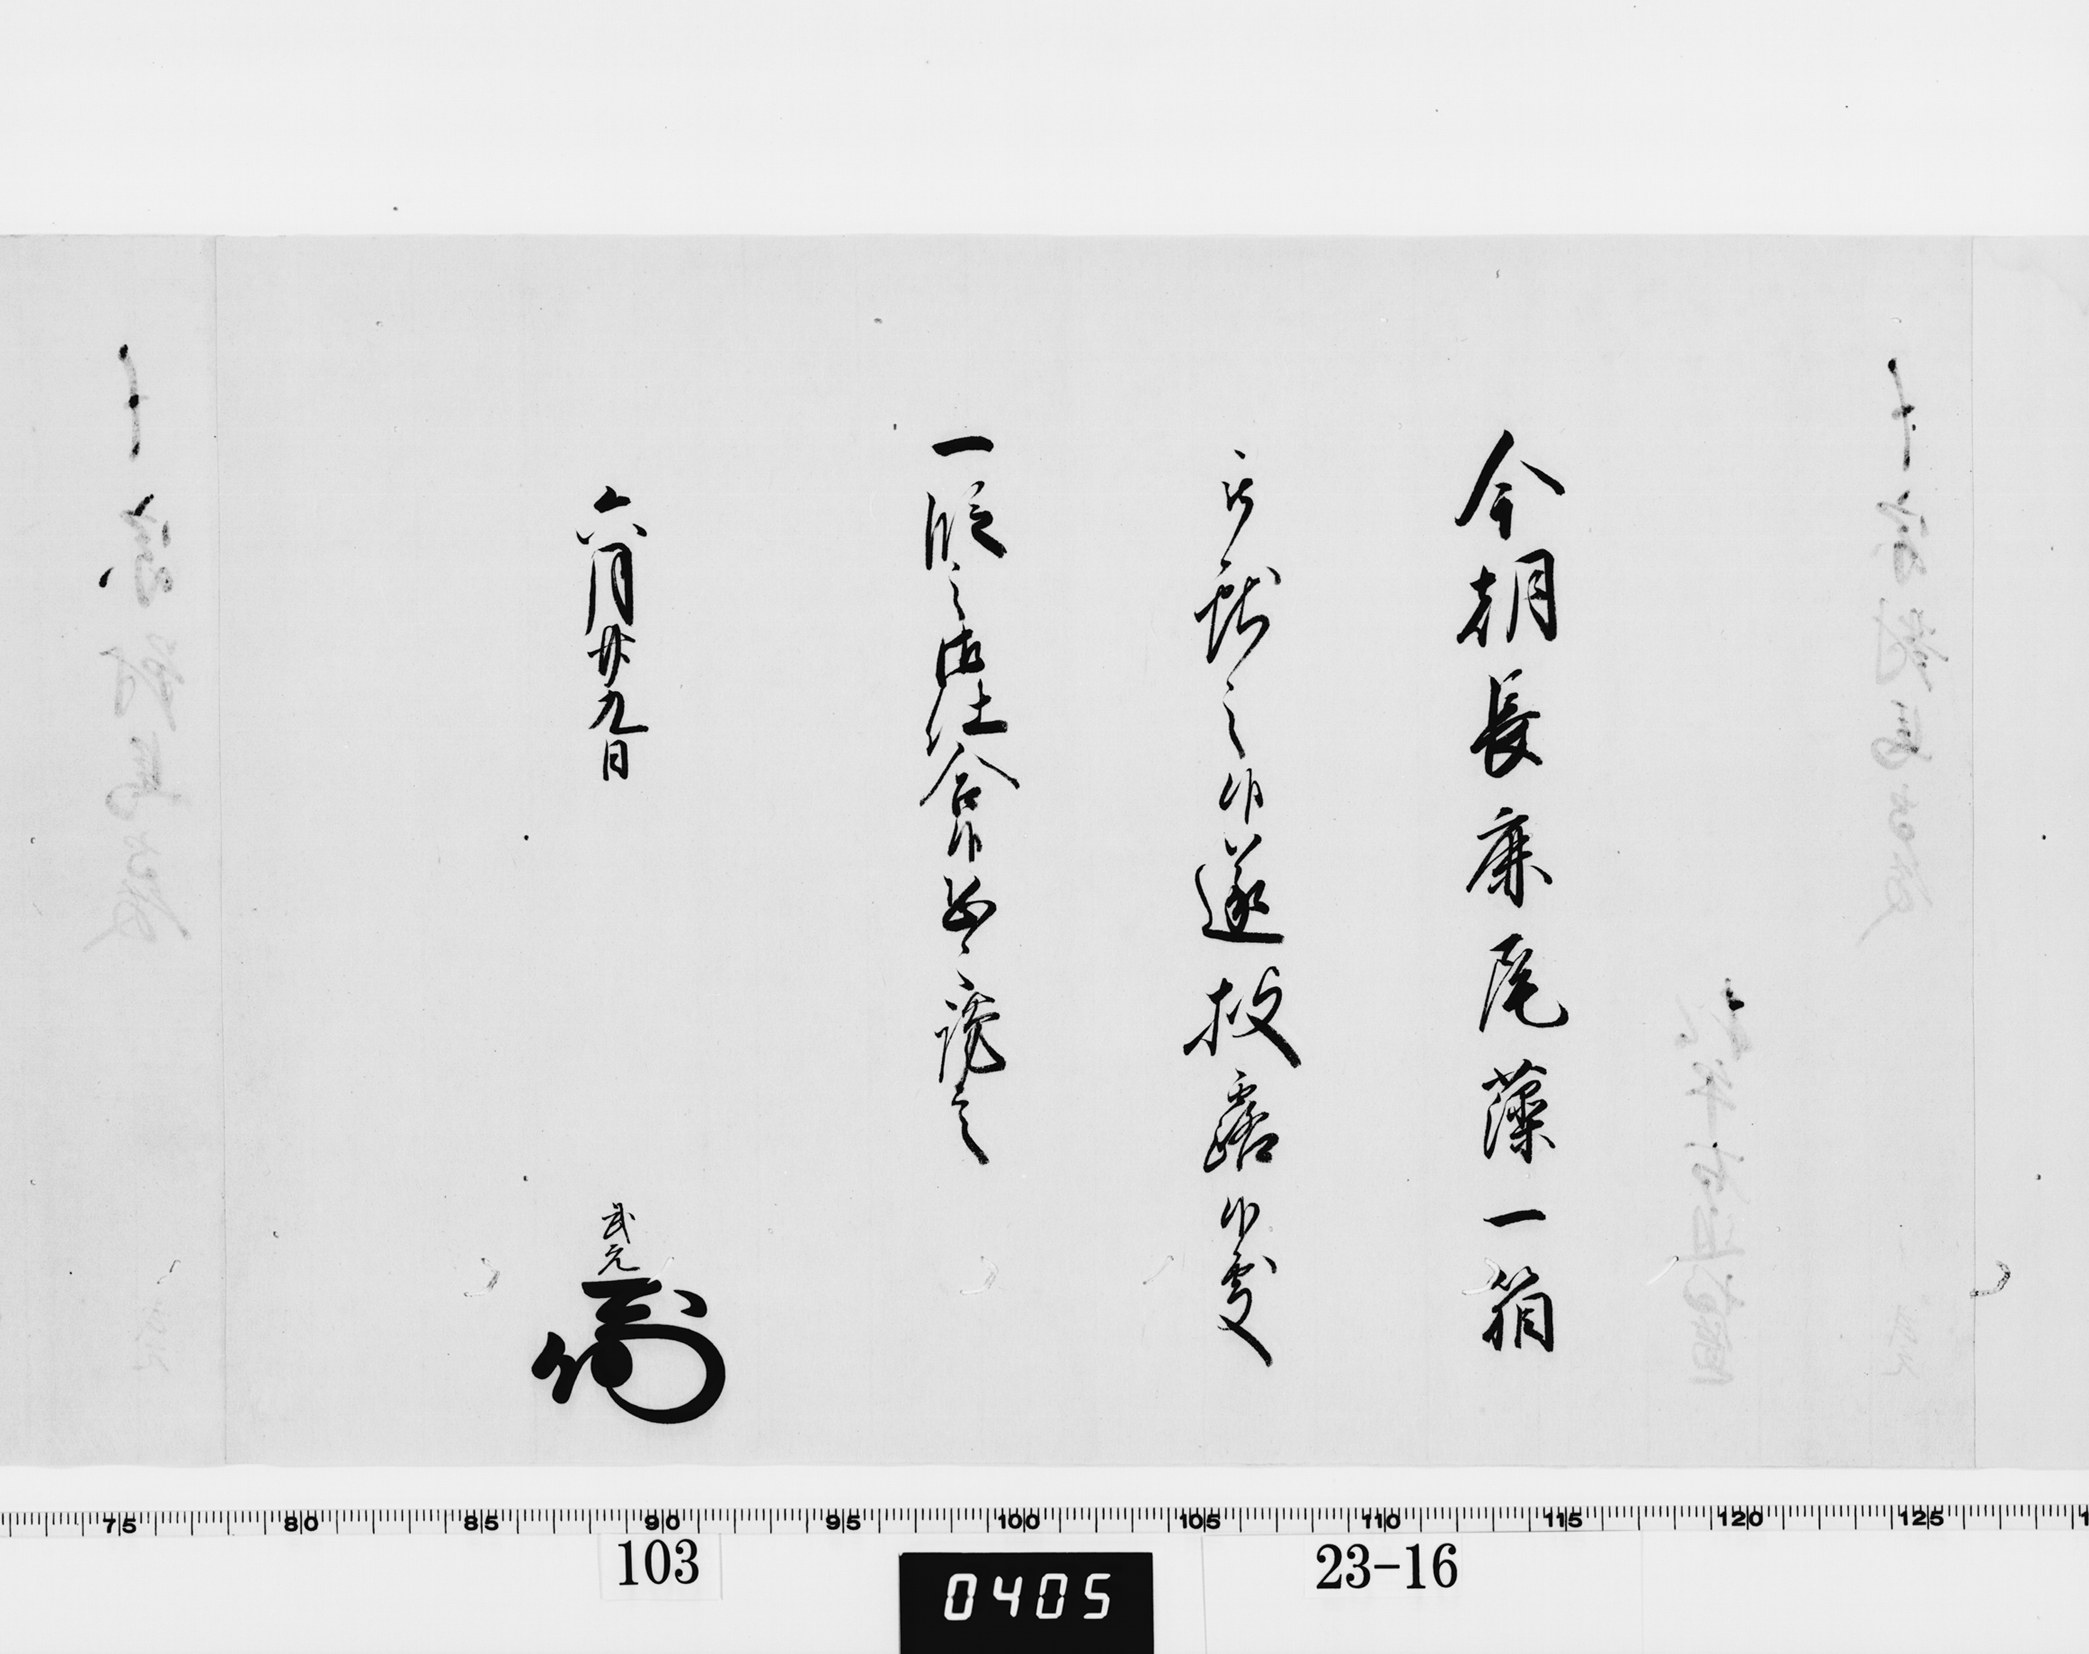 今朝長鹿尾藻一箱
被献之候遂披露候處
一段之御仕合候恐々謹言
六月廿九日
武元
75 80 85 90 95 100 105 110 115 120 125
103
0405
23-16